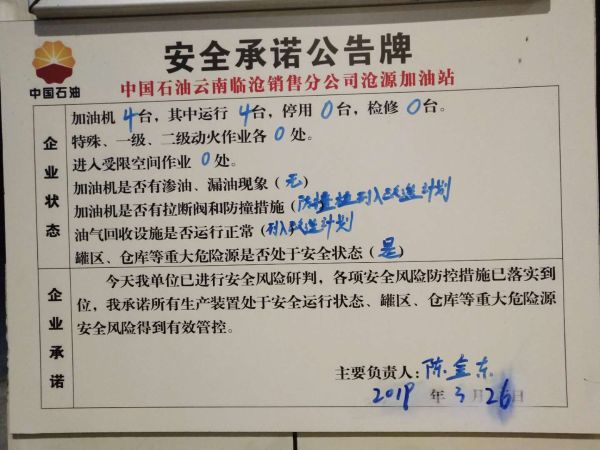 中国石油
安全承诺公告牌
中国石油云南临沧销售分公司沧源加油站
企业状态
加油机4台，其中运行4台，停用0台，检修0台。
特殊、一级、二级动火作业各0处。
进入受限空间作业0处。
加油机是否有渗油、漏油现象（无）
加油机是否有拉断阀和防撞措施（防撞拉列入改造计划
油气回收设施是否运行正常（列入改造计划
罐区、仓库等重大危险源是否处于安全状态（是）
企业承诺
今天我单位已进行安全风险研判，各项安全风险防控措施已落实到
位，我承诺所有生产装置处于安全运行状态、罐区、仓库等重大危险源
安全风险得到有效管控。
主要负责人：陈金东
2019年3月26日